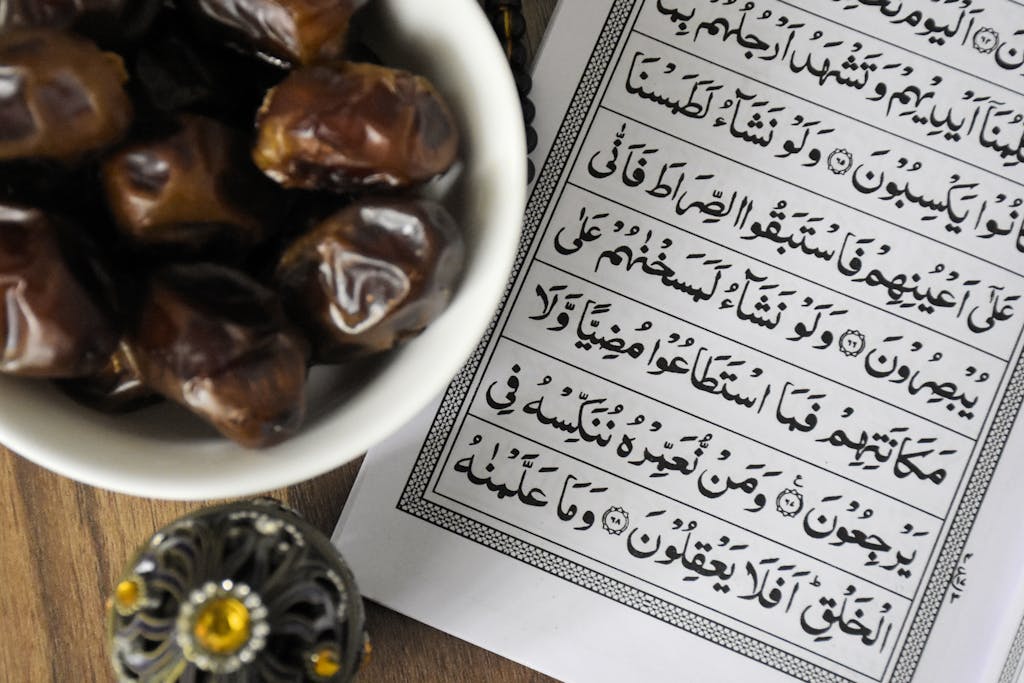 اَلْيَوْمَ
اَيْدِيْهِمْ وَتَشْهَدُ اَرْجُلُهُمْ بِمَا
كَانُوْا يَكْسِبُوْنَ ۝۶۵ وَلَوْ نَشَآءُ لَطَمَسْنَا
عَلٰٓى اَعْيُنِهِمْ فَاسْتَبَقُوا الصِّرَاطَ فَاَنّٰى
يُبْصِرُوْنَ ۝۶۶ وَلَوْ نَشَآءُ لَمَسَخْنٰهُمْ عَلٰى
مَكَانَتِهِمْ فَمَا اسْتَطَاعُوْا مُضِيًّا وَّلَا
يَرْجِعُوْنَ ۝۶۷ وَمَنْ نُّعَمِّرْهُ نُنَكِّسْهُ فِى
الْخَلْقِؕ اَفَلَا يَعْقِلُوْنَ ۝۶۸ وَمَا عَلَّمْنٰهُ